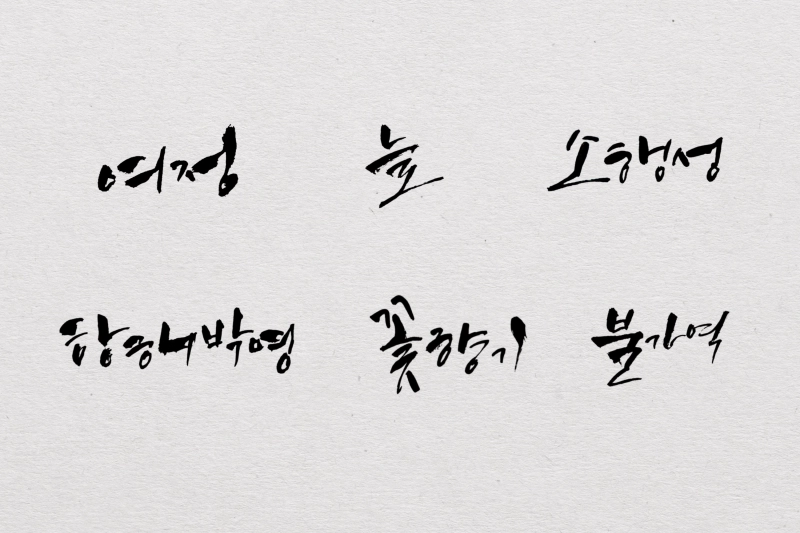 여정 늘 소행성
항해박명 꽃향기 불가역